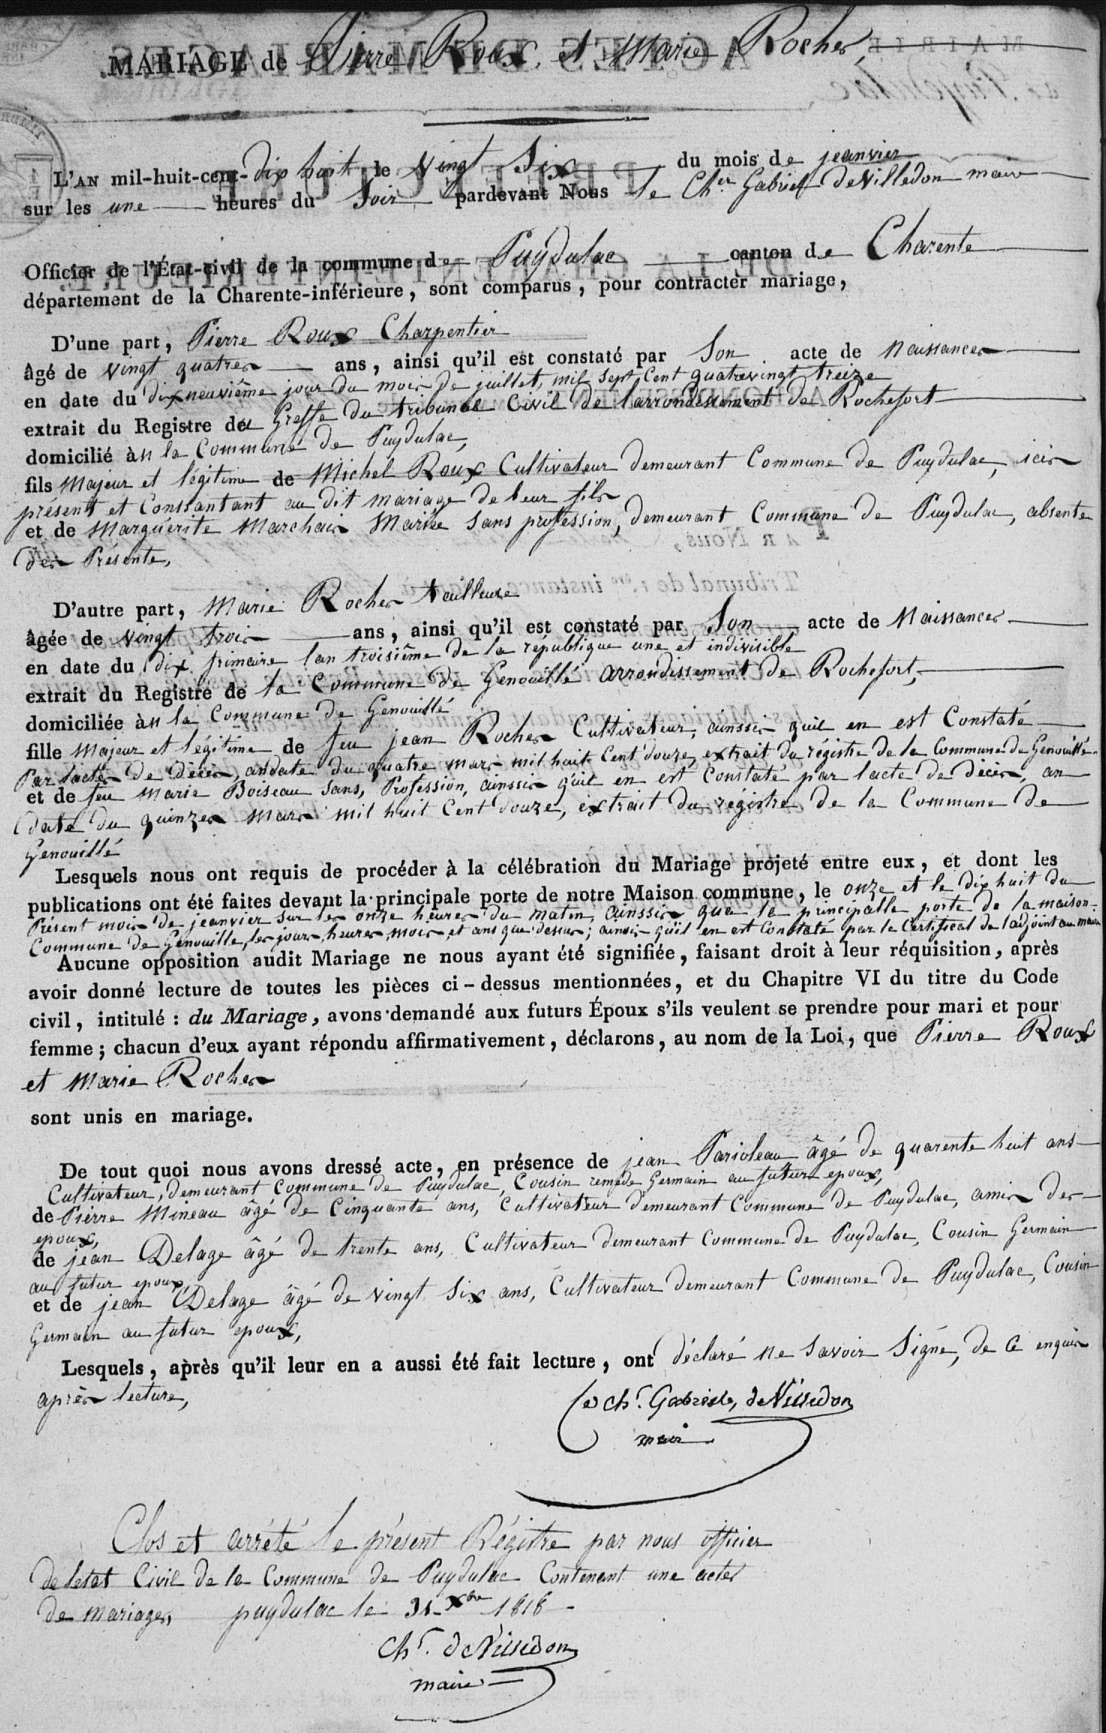 MARIAGE de Pierre Roux et Marie Rocher
L'AN mil-huit-cent-dix huit le vingt Six du mois de jeanvier
sur les une heures du Soir pardevant Nous le Cher Gabriel deVilledon maire
Officier de l'État-civil de la commune de Puydulac canton de Charente
département de la Charente-inférieure, sont comparus, pour contracter mariage,
D'une part, Pierre Roux Charpentier
âgé de vingt quatre ans, ainsi qu'il est constaté par Son acte de Naissance
en date du dixneuvième jour du mois de juillet, mil sept Cent quatrevingt treize
extrait du Registre du Greffe du tribunal Civil de larrondissement de Rochefort
domicilié àn la Commune de Puydulac,
fils Majeur et légitime de Michel Roux Cultivateur demeurant Commune de Puydulac, ici
présent et Consantant au dit mariage de leur fils
et de Marguerite Marchais Mariée Sans profession, demeurant Commune de Puydulac, absente
de Présente,
D'autre part, Marie Rocher tailleuse
âgée de vingt trois ans, ainsi qu'il est constaté par Son acte de Naissance
en date du dix frimaire lan troisième de la république une et indivisible
extrait du Registre de la Commune de Genouillé arrondissement de Rochefort,
domiciliée àn la Commune de Genouillé
fille Majeur et légitime de feu jean Rocher Cultivateur, ainssi quil en est Constaté
Par lacte de décès, andate du quatre mars mil huit Cent douze, extrait du registre de la Commune de Genouillé
et de feu Marie Boiseau Sans Profession, ainssi quil en est Constaté par lacte de décès, an
date du quinze mars mil huit Cent douze, extrait du registre de la Commune de
Genouillé
Lesquels nous ont requis de procéder à la célébration du Mariage projeté entre eux, et dont les
publications ont été faites devant la principale porte de notre Maison commune, le onze et le dix huit du
Présent mois de jeanvier sur les onze heures du matin, ainssi que la principalle porte de la maison
Commune de Genouillé, les jours, heures, mois et ans que dessus; ainssi quil en est Constaté par le Certificat de ladjoint au maire
Aucune opposition audit Mariage ne nous ayant été signifiée, faisant droit à leur réquisition, après
avoir donné lecture de toutes les pièces ci-dessus mentionnées, et du Chapitre VI du titre du Code
civil, intitulé : du Mariage, avons demandé aux futurs Époux s'ils veulent se prendre pour mari et pour
femme; chacun d'eux ayant répondu affirmativement, déclarons, au nom de la Loi, que Pierre Roux
et Marie Rocher
sont unis en mariage.
De tout quoi nous avons dressé acte, en présence de jean Parioleau âgé de quarente huit ans
Cultivateur, demeurant Commune de Puydulac, Cousin remede Germain au futur epoux,
de Pierre Mineau âgé de Cinquante ans, Cultivateur demeurant Commune de Puydulac, ami des
epoux,
de jean Delage âgé de trente ans, Cultivateur demeurant Commune de Puydulac, Cousin Germain
au futur epoux,
et de jean Delage âgé de vingt Six ans, Cultivateur demeurant Commune de Puydulac, Cousin
Germain au futur epoux,
Lesquels, après qu'il leur en a aussi été fait lecture, ont déclaré ne Savoir Signé, de ce enquis
après lecture,
Le chr. Gabriele, deVilledon
maire
Clos et arrété le présent Régitre par nous officier
de letat Civil de la Commune de Puydulac Contenant une acte
de mariage, puydulac le 31 Xbre 1818
Chr. deVilledon
maire